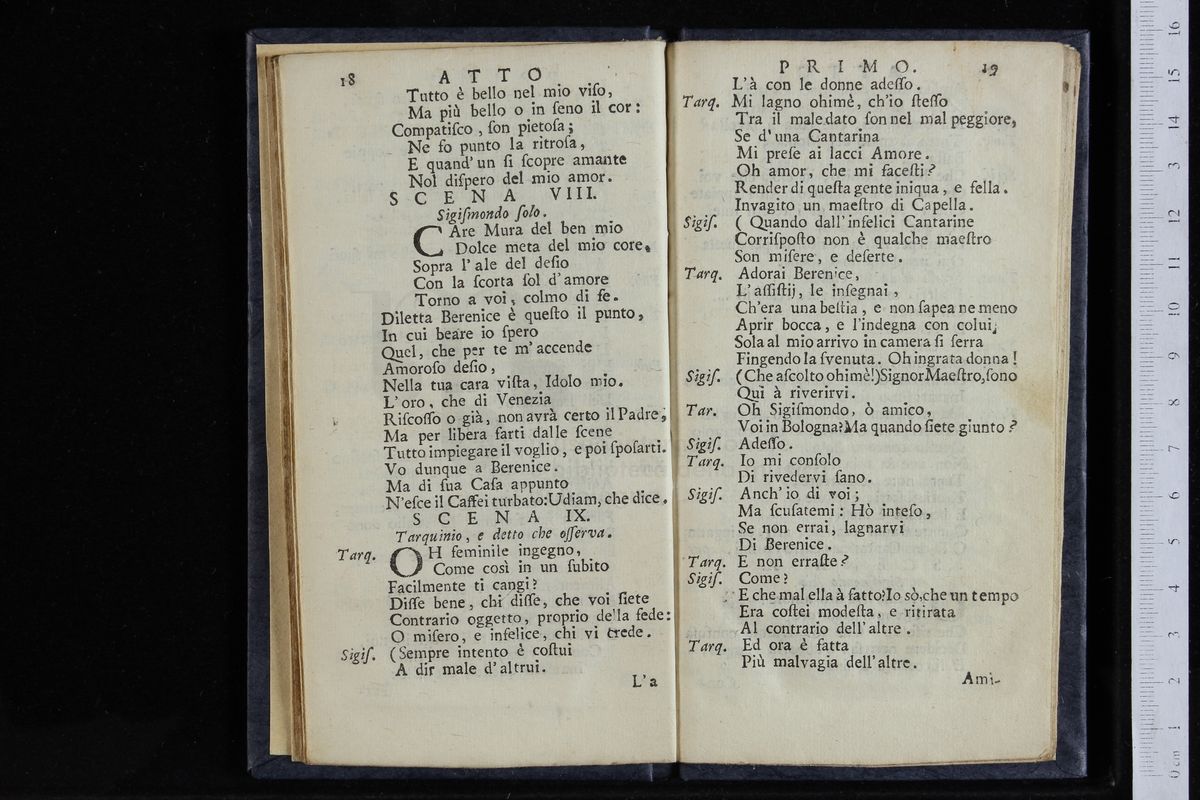 18 ATTO
Tutto è bello nel mio viſo,
Ma più bello o in ſeno il cor:
Compatiſco, ſon pietoſa;
Ne fo punto la ritroſa,
E quand' un ſi ſcopre amante
Noì diſpero del mio amor.
SCENA VIII.
Sigiſmondo ſolo.
CAre Mura del ben mio
Dolce meta del mio core,
Sopra l' ale del deſio
Con la ſcorta ſol d'amore
Torno a voi, colmo di fe.
Diletta Berenice è queſto il punto,
In cui beare io ſpero
Quel, che per te m'accende
Amoroſo deſio,
Nella tua cara viſta, Idolo mio.
L'oro, che di Venezia
Riſcoſſo o già, non avrà certo il Padre;
Ma per libera farti dalle ſcene
Tutto impiegare il voglio, e poi ſpoſarti.
Vo dunque a Berenice.
Ma di ſua Caſa appunto
N'eſce il Caffei turbato: Udiam, che dice.
SCENA IX.
Tarquinio, e detto che oſſerva.
Tarq. OH feminile ingegno,
Come così in un ſubito
Facilmente ti cangi?
Diſſe bene, chi diſſe, che voi ſiete
Contrario oggetto, proprio della fede:
O miſero, e infelice, chi vi crede.
Sigiſ. (Sempre intento è coſtui
A dir male d'altrui.
L'a
PRIMO. 19
L'à con le donne adeſſo.
Tarq. Mi lagno ohimè, ch'io ſteſſo
Tra il male dato ſon nel mal peggiore,
Se d'una Cantarina
Mi preſe ai lacci Amore.
Oh amor, che mi faceſti?
Render di queſta gente iniqua, e fella.
Invagito un maeſtro di Capella.
Sigiſ. (Quando dall'infelici Cantarine
Corriſpoſto non è qualche maeſtro
Son miſere, e deſerte.
Tarq. Adorai Berenice,
L'aſſiſtij, le inſegnai,
Ch'era una beſtia, e non ſapea ne meno
Aprir bocca, e l'indegna con colui,
Sola al mio arrivo in camera ſi ſerra
Fingendo la ſvenuta. Oh ingrata donna!
Sigiſ. (Che aſcolto ohimè!) Signor Maeſtro, ſono
Quì à riverirvi.
Tar. Oh Sigiſmondo, ò amico,
Voi in Bologna? Ma quando ſiete giunto?
Sigiſ. Adeſſo.
Tarq. Io mi conſolo
Di rivedervi ſano.
Sigiſ. Anch'io di voi;
Ma ſcuſatemi: Hò inteſo,
Se non errai, lagnarvi
Di Berenice.
Tarq. E non erraſte?
Sigiſ. Come?
E che mal ella à fatto? Io sò, che un tempo
Era coſtei modeſta, e ritirata
Al contrario dell'altre.
Tarq. Ed ora è fatta
Più malvagia dell'altre.
Ami-
0 cm 1 2 3 4 5 6 7 8 9 10 11 12 13 14 15 16